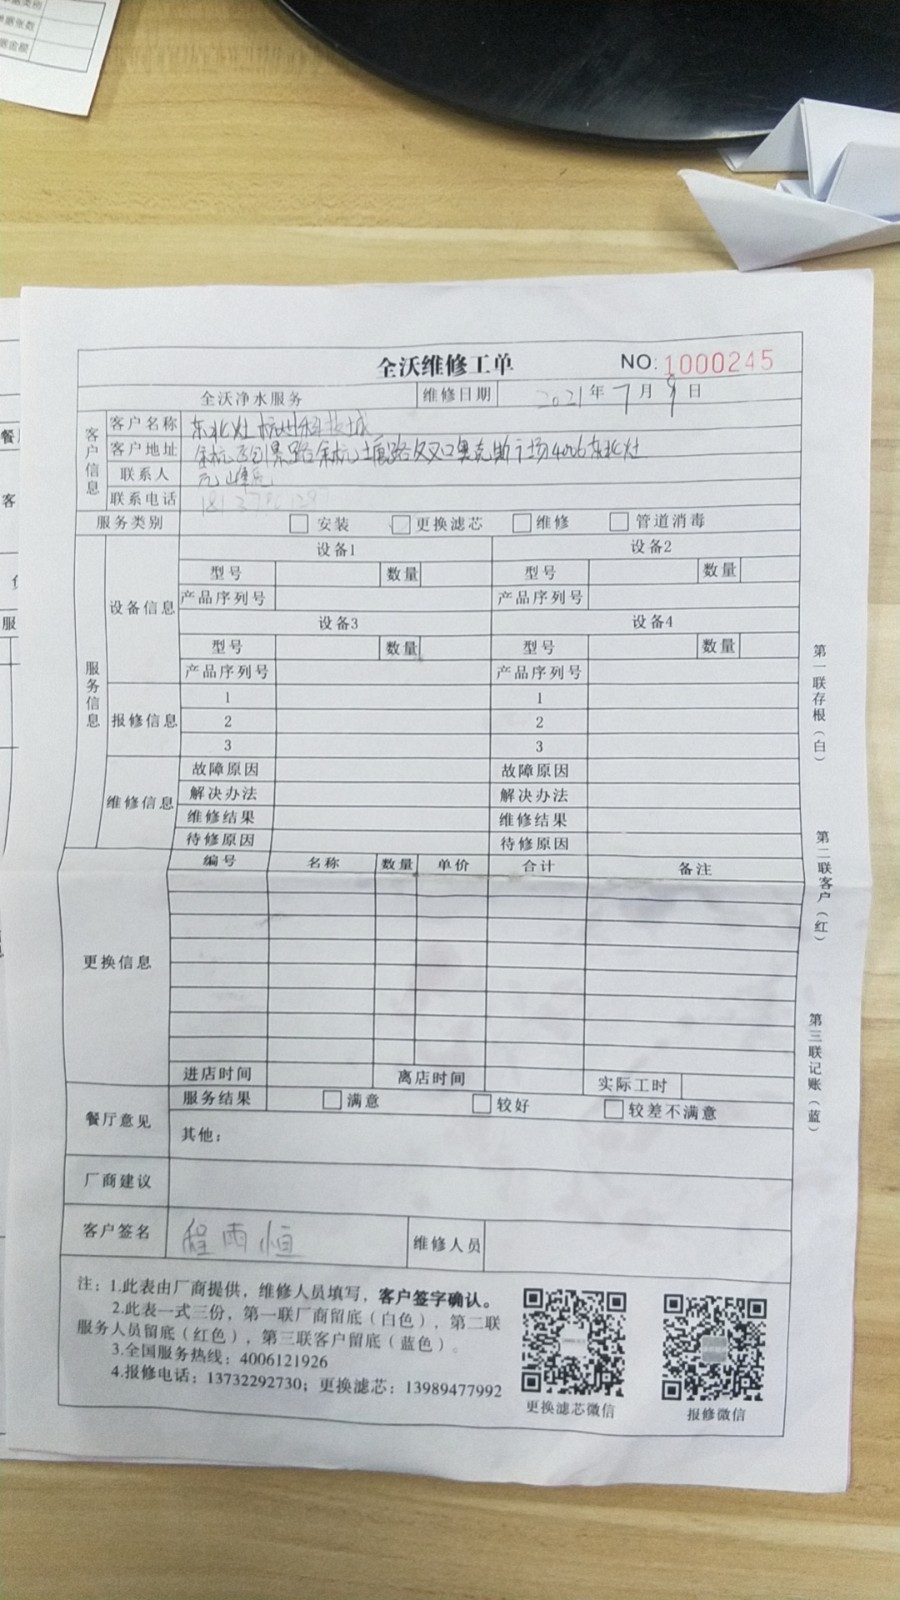 全沃维修工单 NO:1000245
全沃净水服务 维修日期 2021年7月9日
客户信息
客户名称 东北灶杭州科技城
客户地址 余杭 路余杭塘路交叉口奥克斯广场4006东北灶
联系人
联系电话
服务类别 安装 更换滤芯 维修 管道消毒
服务信息
设备信息
设备1 设备2
型号 数量 型号 数量
产品序列号 产品序列号
设备3 设备4
型号 数量 型号 数量
产品序列号 产品序列号
报修信息
1 1
2 2
3 3
维修信息
故障原因 故障原因
解决办法 解决办法
维修结果 维修结果
待修原因 待修原因
更换信息
编号 名称 数量 单价 合计 备注
进店时间 离店时间 实际工时
餐厅意见
服务结果 满意 较好 较差不满意
其他：
厂商建议
客户签名 程雨恒 维修人员
注：1.此表由厂商提供，维修人员填写，客户签字确认。
2.此表一式三份，第一联厂商留底（白色），第二联
服务人员留底（红色），第三联客户留底（蓝色）。
3.全国服务热线：4006121926
4.报修电话：13732292730；更换滤芯：13989477992
更换滤芯微信 报修微信
第一联存根（白）
第二联客户（红）
第三联记账（蓝）